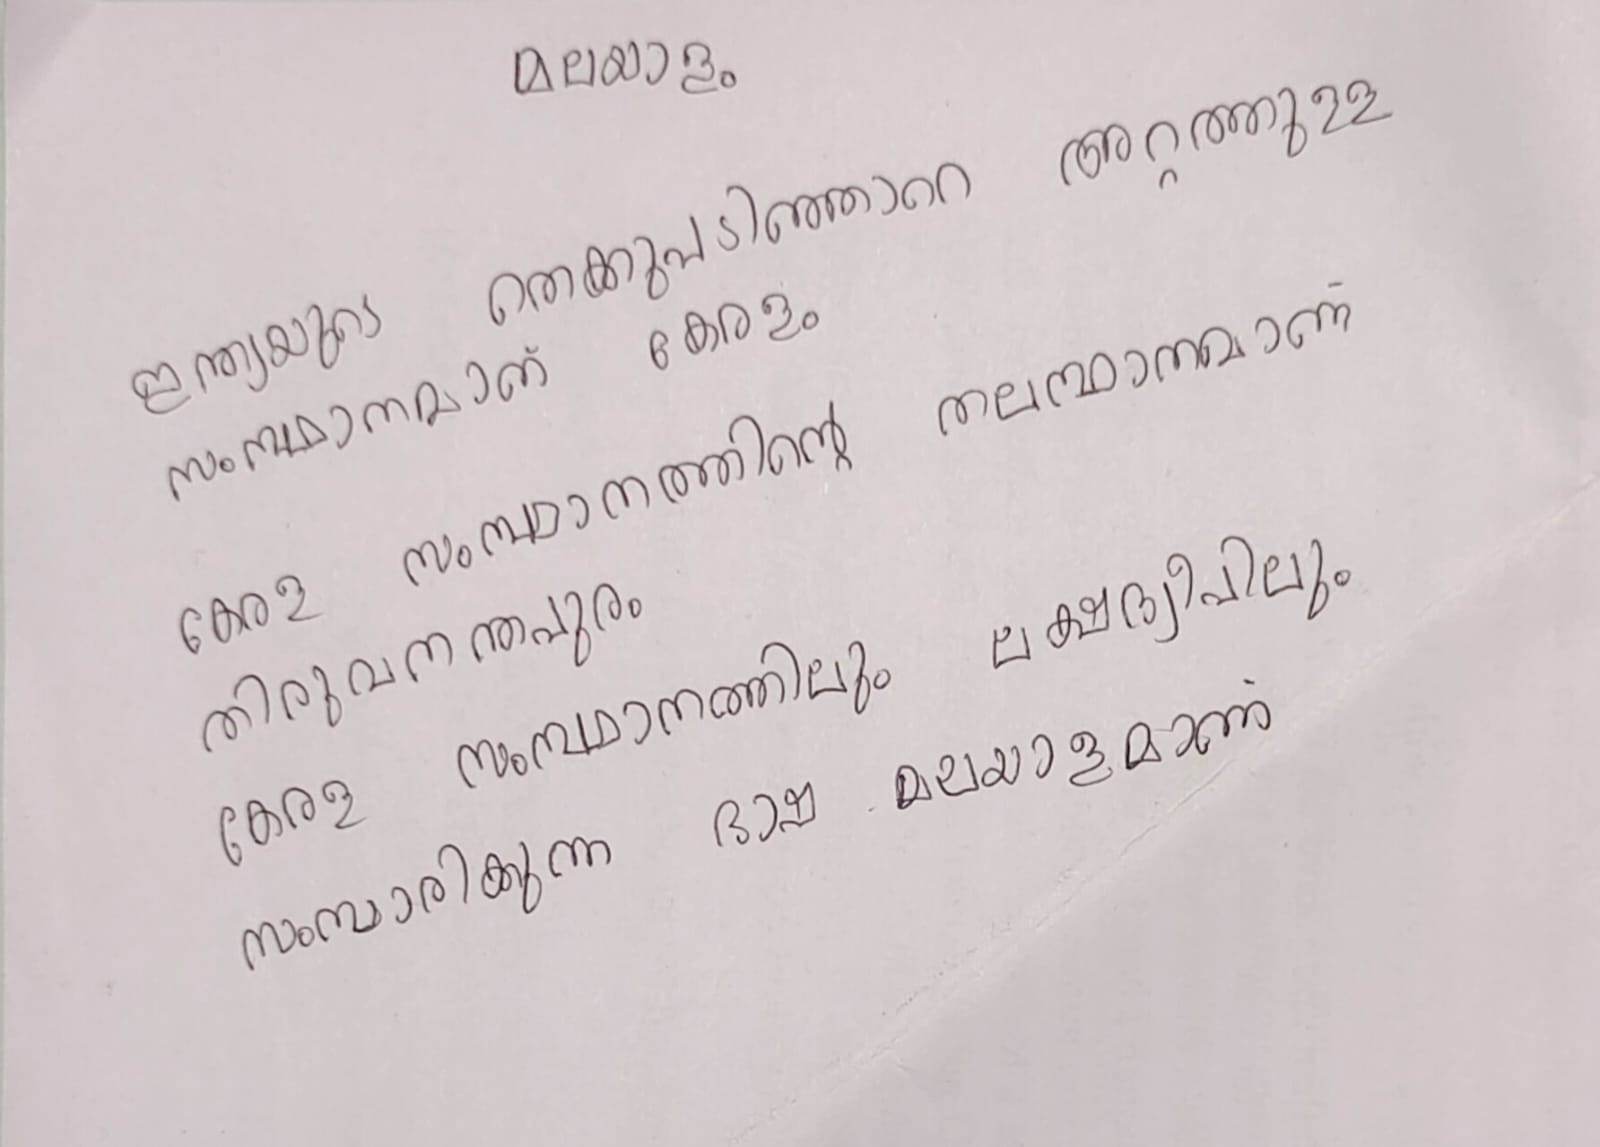 മലയാളം
ഇന്ത്യയുടെ തെക്കുപടിഞ്ഞാറെ അറ്റത്തുള്ള
സംസ്ഥാനമാണ് കേരളം
കേരള സംസ്ഥാനത്തിന്റെ തലസ്ഥാനമാണ്
തിരുവനന്തപുരം
കേരള സംസ്ഥാനത്തിലും ലക്ഷദ്വീപിലും
സംസാരിക്കുന്ന ഭാഷ മലയാളമാണ്